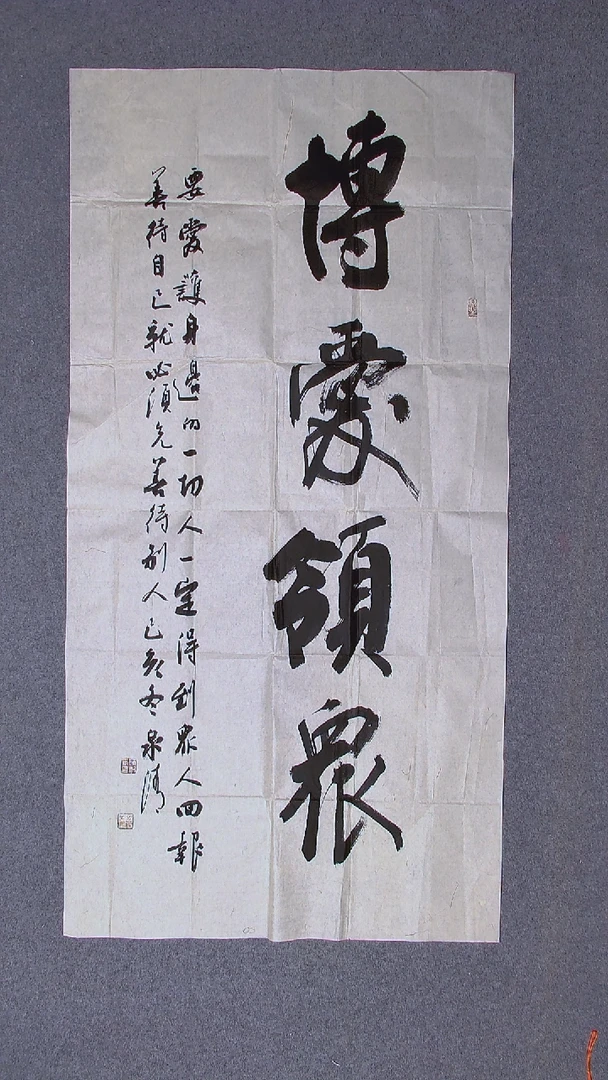 博愛領眾
要愛護身邊的一切人一定得到眾人回報
善待自己就必須先善待别人己亥冬泉清